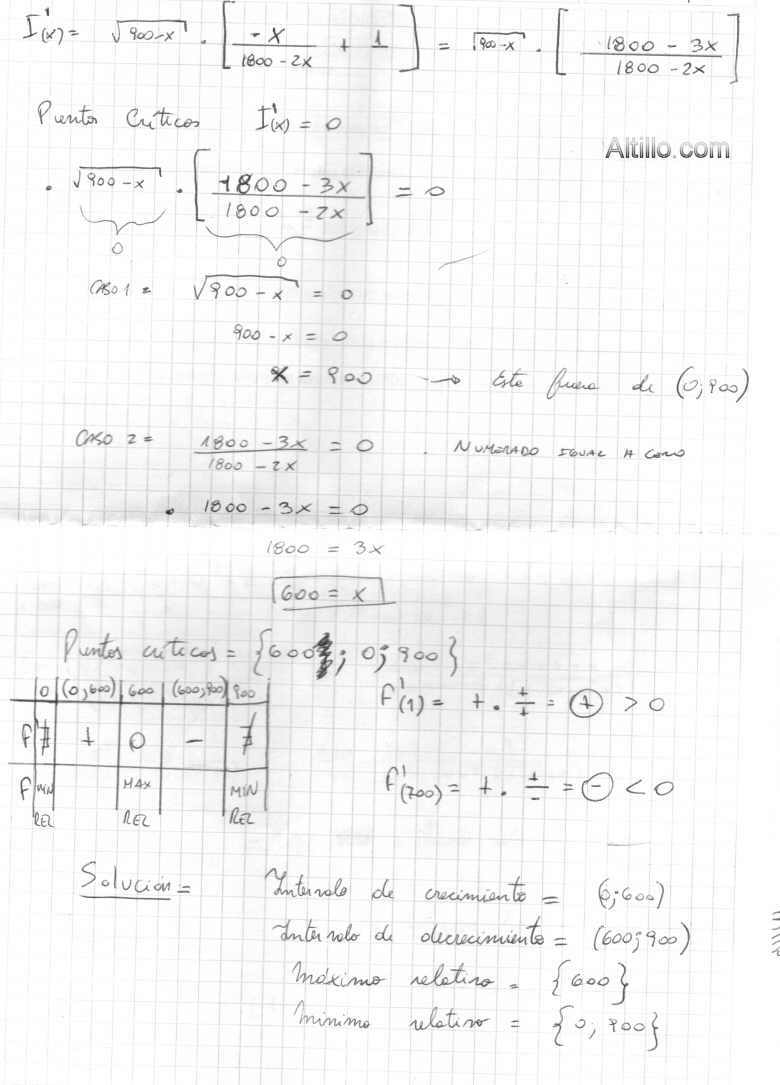 I'(x) = √900-x · [ -x / 1800-2x + 1 ] = √900-x · [ 1800-3x / 1800-2x ]
Puntos Críticos I'(x) = 0
Altillo.com
· √900-x · [ 1800-3x / 1800-2x ] = 0
0 0
CASO 1 = √900-x = 0
900-x = 0
x = 900 → Esta fuera de (0;900)
CASO 2 = 1800-3x / 1800-2x = 0 . NUMERADO IGUAL A CERO
· 1800-3x = 0
1800 = 3x
600 = x
Puntos críticos = {600; 0; 900}
0 (0;600) 600 (600;900) 900
f' ∄ + 0 - ∄
f MIN REL MAX REL MIN REL
f'(1) = + · +/+ = + > 0
f'(700) = + · +/- = - < 0
Solución = Intervalo de crecimiento = (0;600)
Intervalo de decrecimiento = (600;900)
Máximo relativo = {600}
Mínimo relativo = {0, 900}